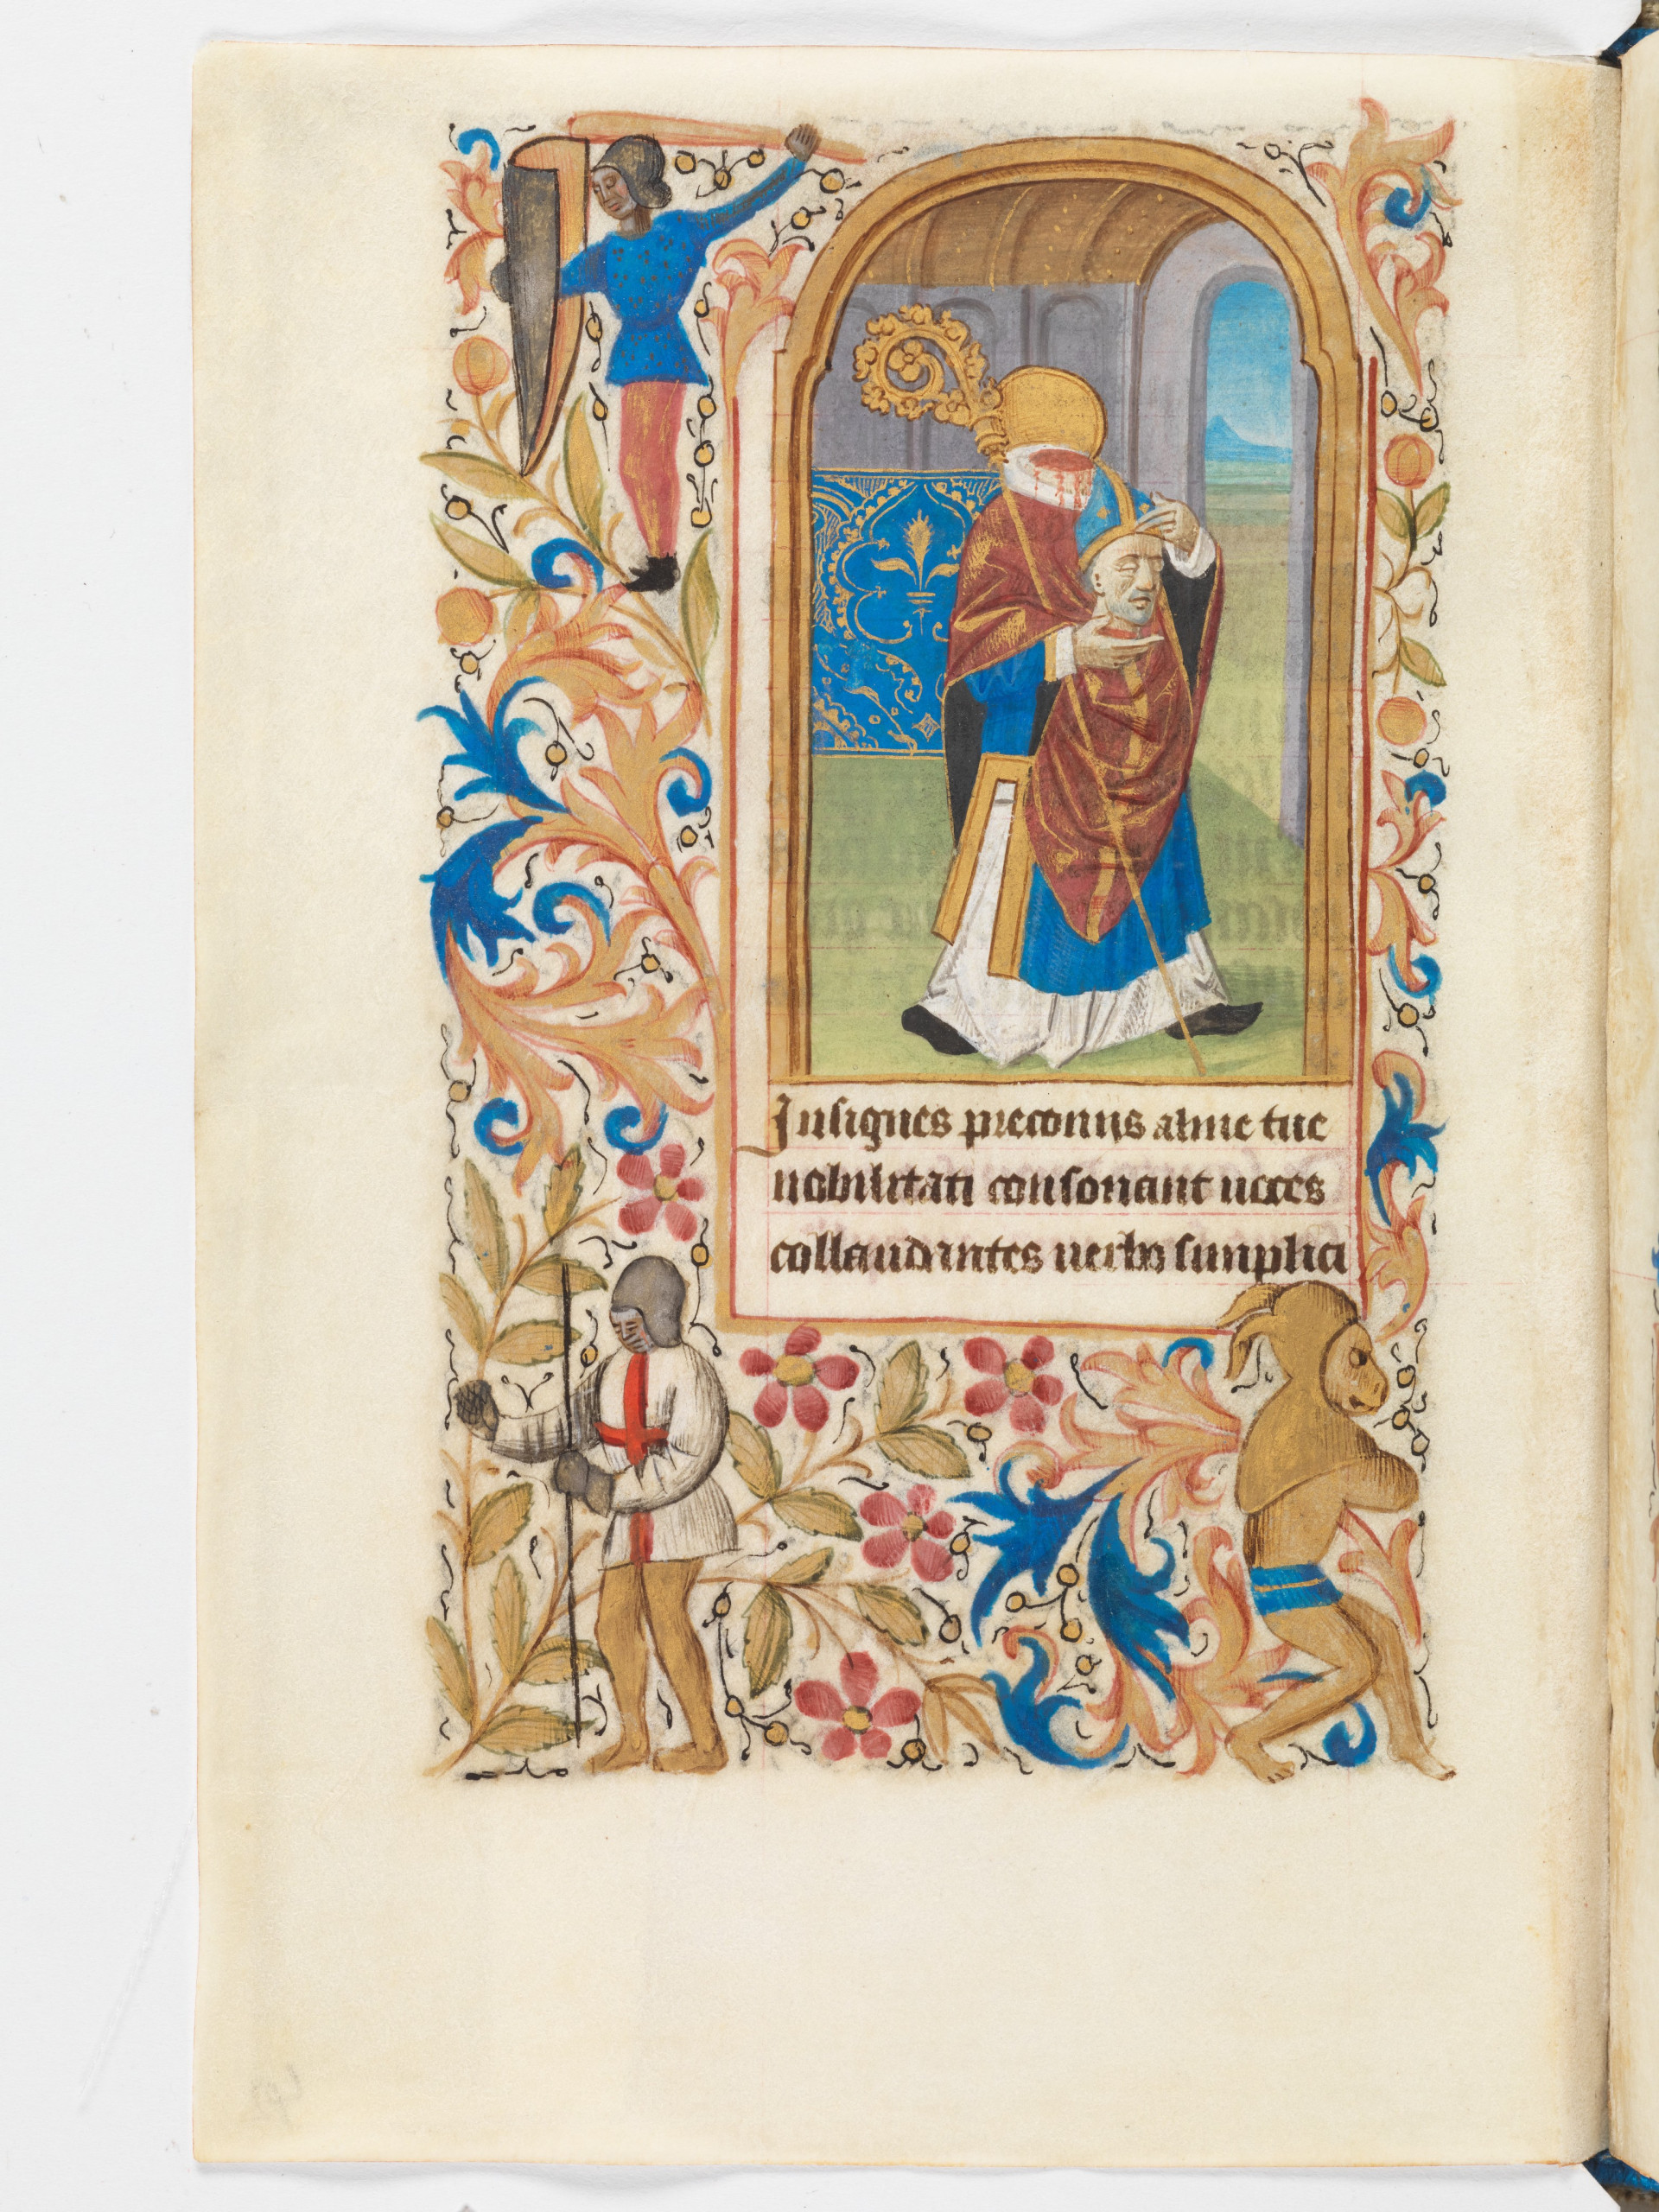 Insignes preconiis alme tue
nobilitati consonant uoces
collaudantes uerbo simplici